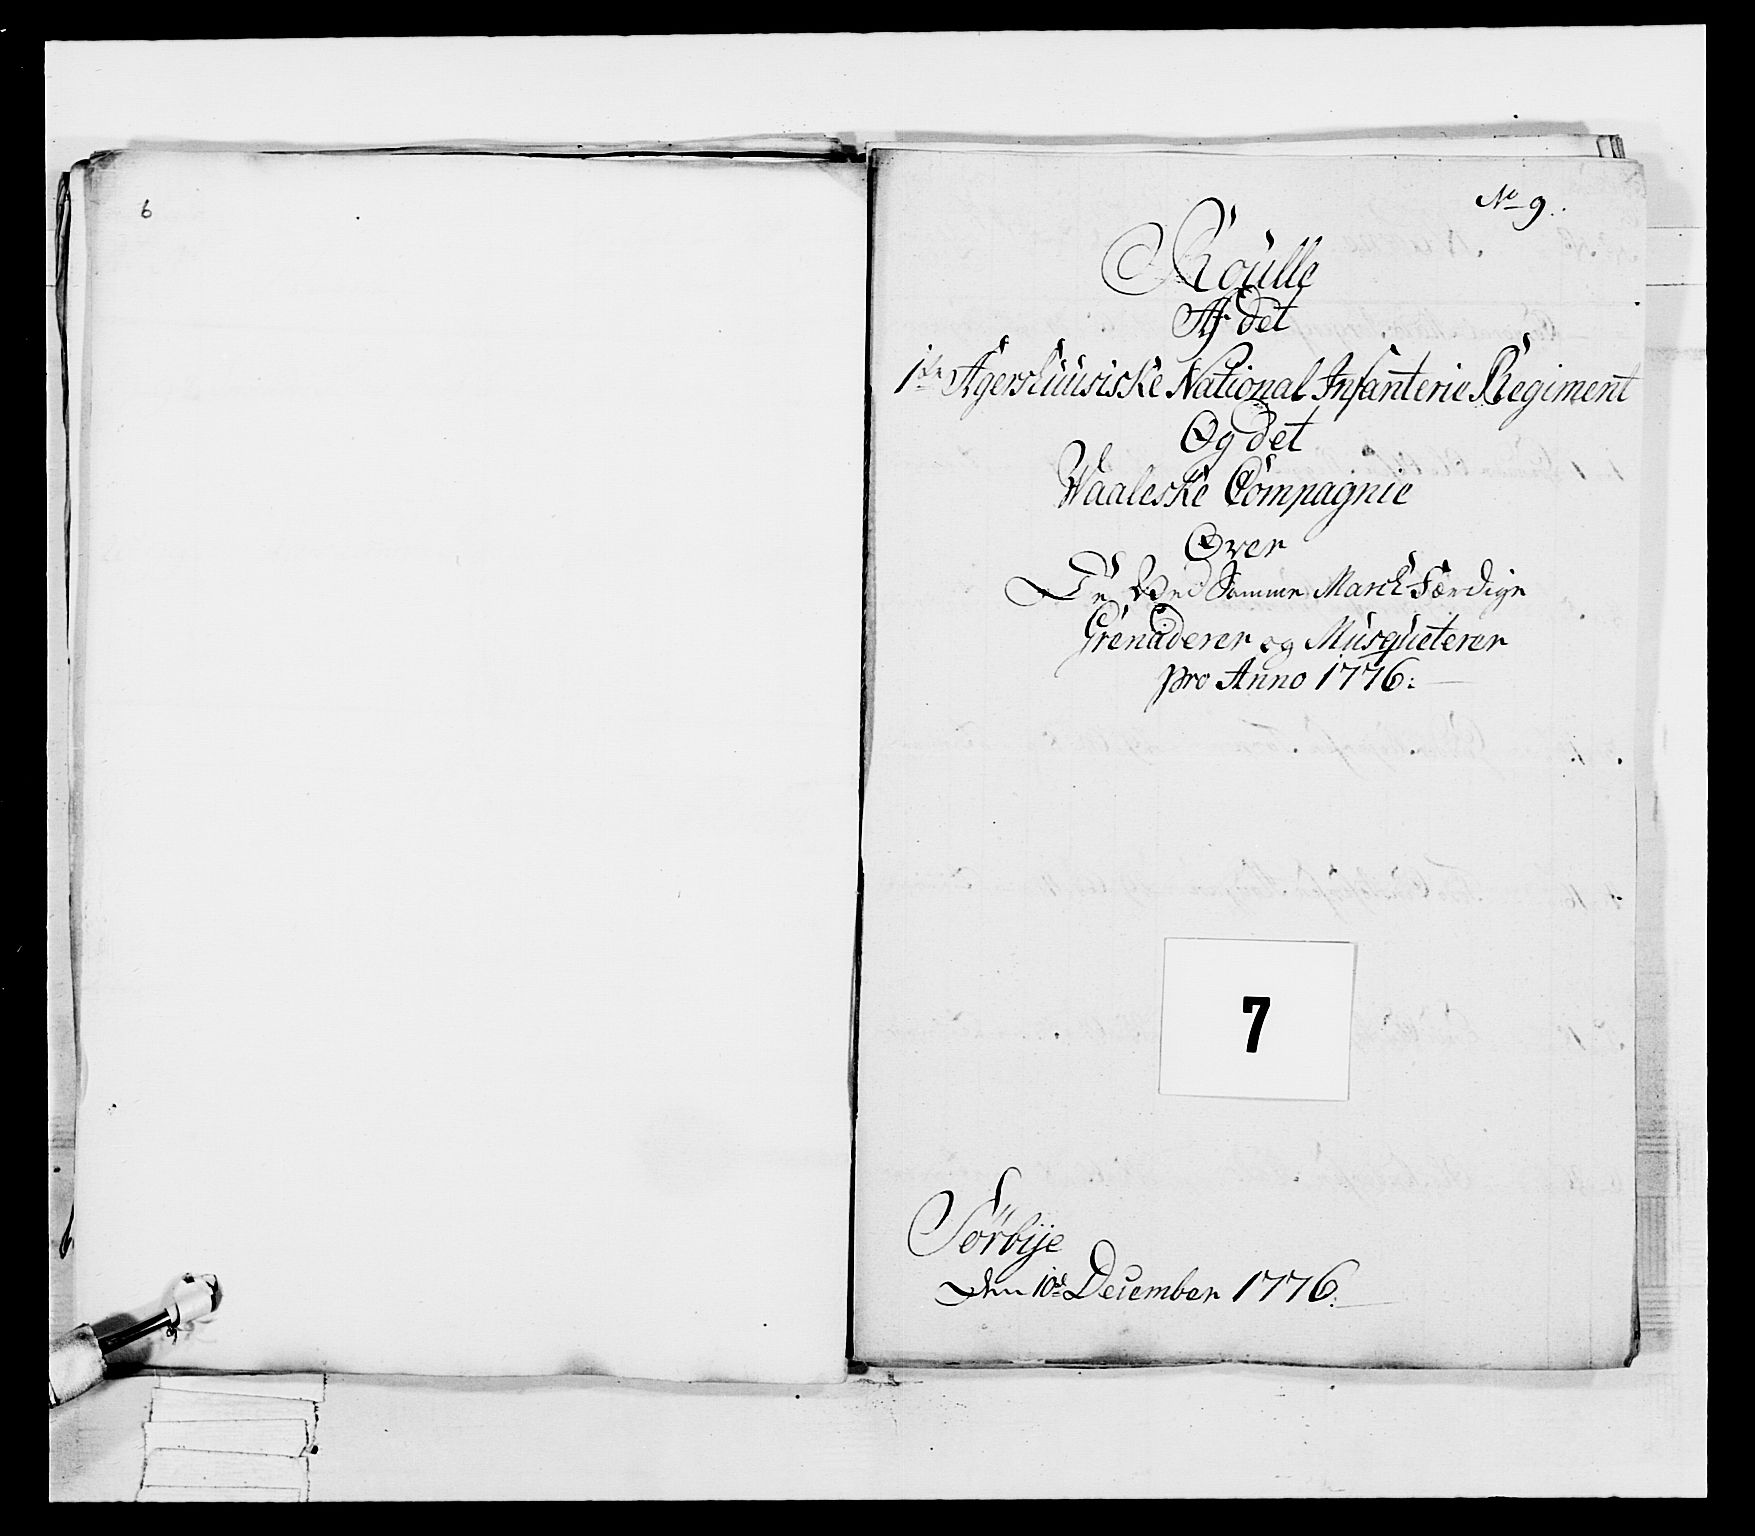 6
No 9.
Roulle
Af det
1ste Agerhuusiske National Infanterie Regiment
Og det
Waaleske Compagnie
Over
De Ved Samme March Færdige
Grenaderer og Musqueterer
pro Anno 1776:
7
Sörbije
den 10de December 1776.